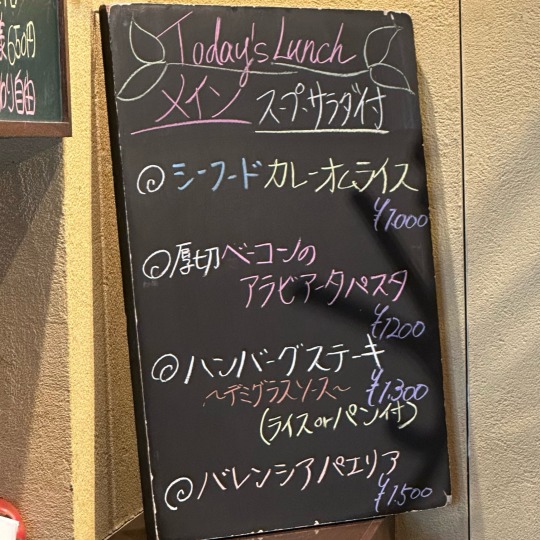 650円
自由
Today's Lunch
メイン スープ・サラダ付
シーフードカレーオムライス
¥1.000
厚切ベーコンの
アラビアータパスタ
¥1200
ハンバーグステーキ
～デミグラスソース～ ¥1.300
(ライスorパン付)
バレンシアパエリア
¥1.500